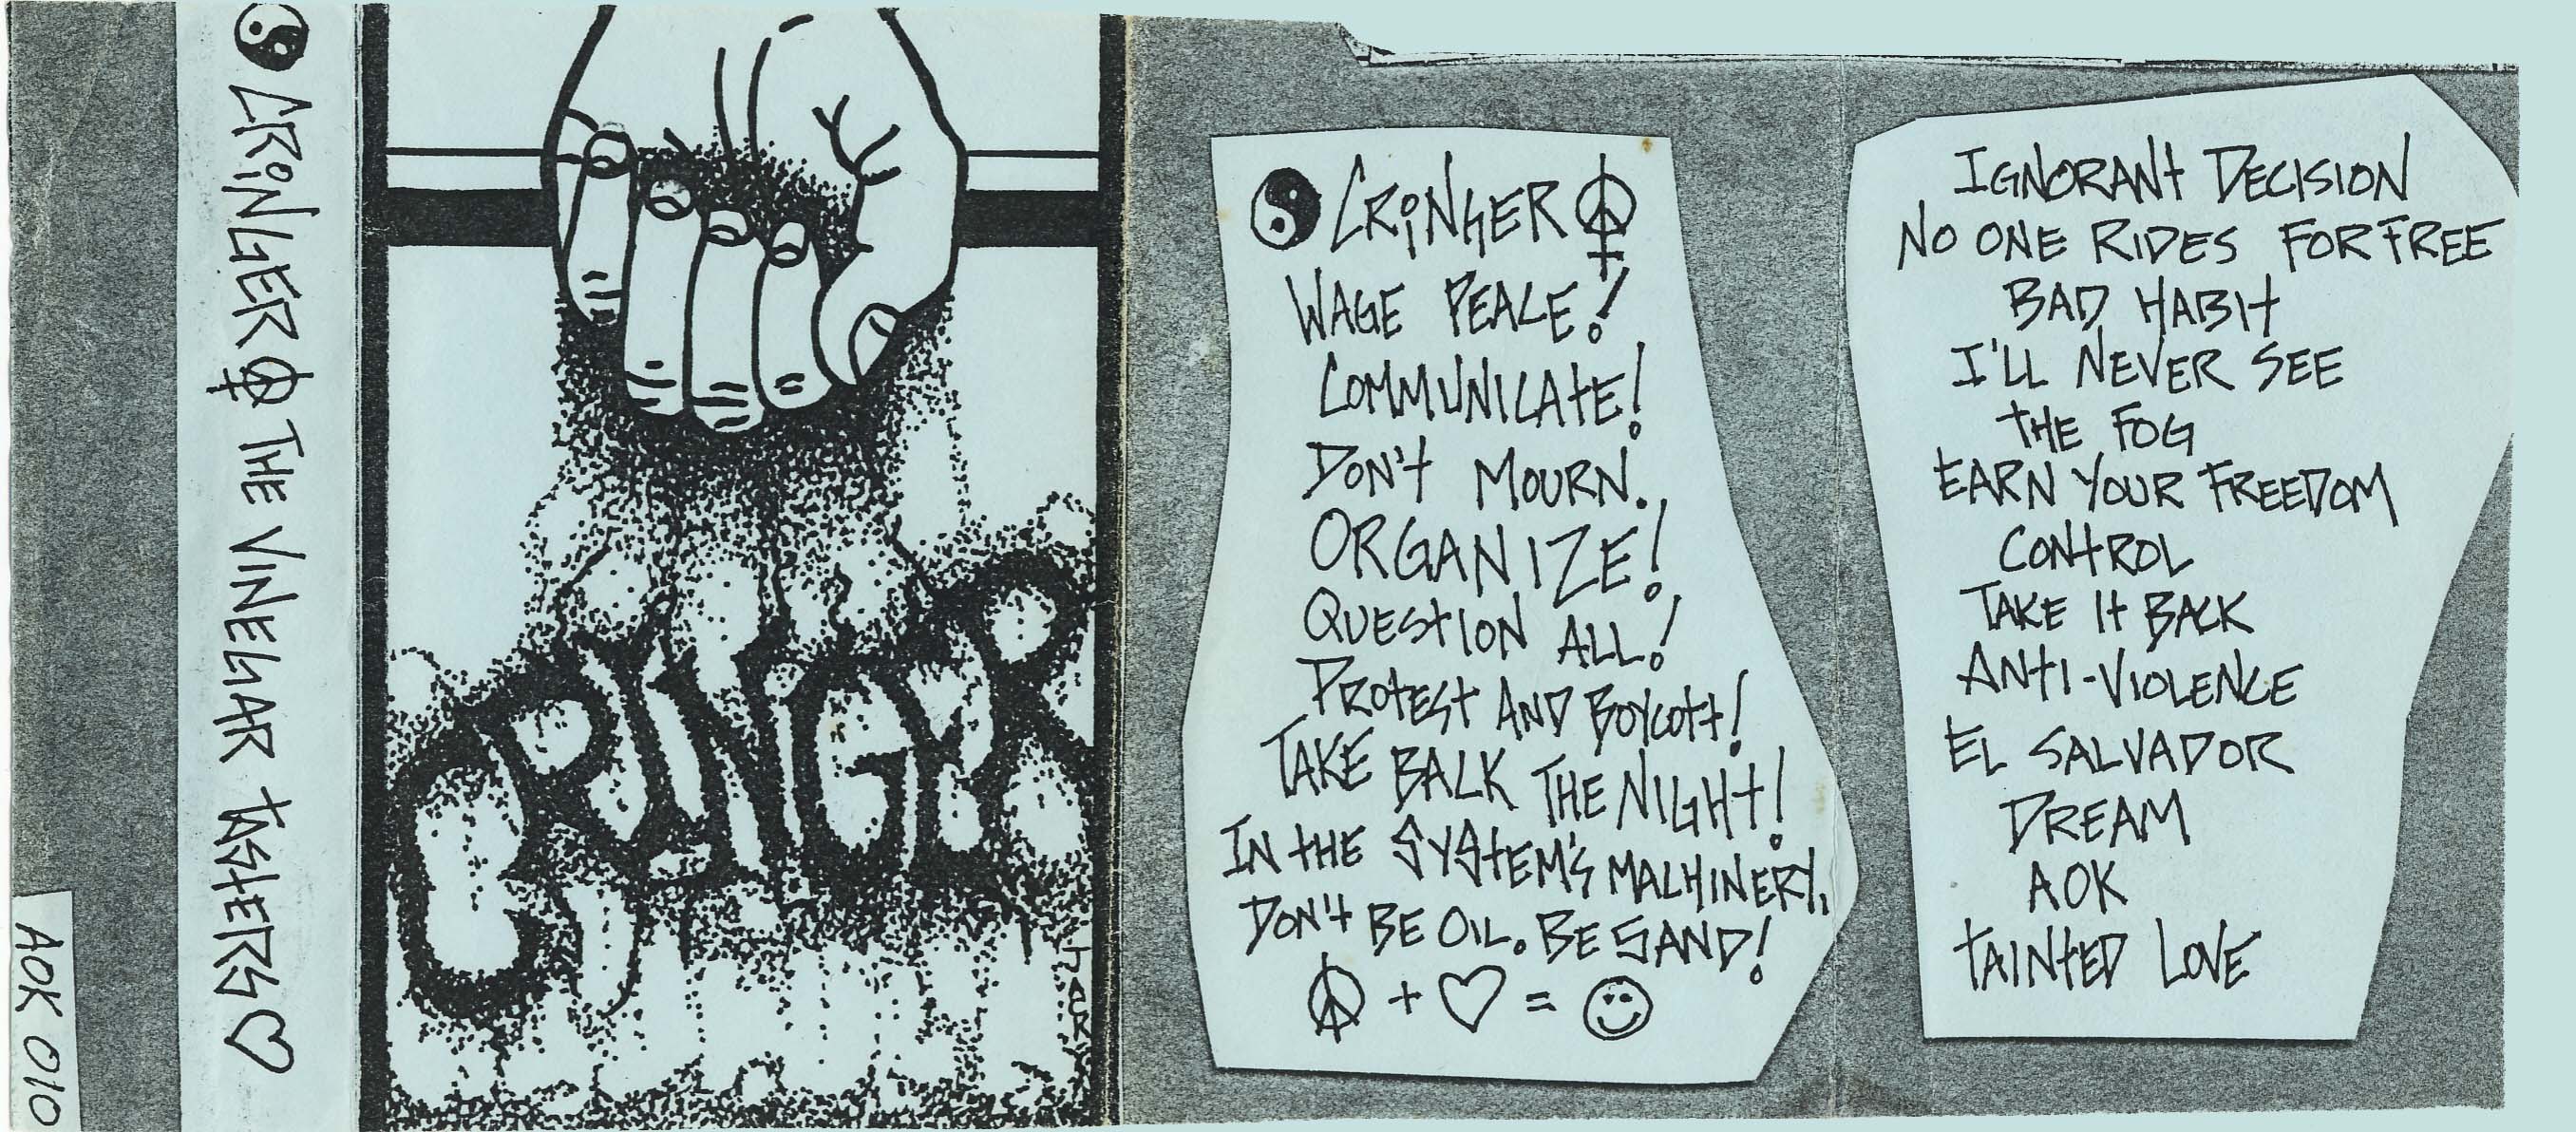 CRiNGER THE VINEGAR TASTERS
AOK 010
CRINGER
JACKSON
CRiNGER
WAGE PEACE!
COMMUNICATE!
DON'T MOURN.
ORGANIZE!
QUESTION ALL!
PROTEST AND BOYCOTT!
TAKE BACK THE NIGHT!
IN THE SYSTEM'S MACHINERY,
DON'T BE OIL. BE SAND!
+ =
IGNORANT DECISION
NO ONE RIDES FOR FREE
BAD HABIT
I'LL NEVER SEE
THE FOG
EARN YOUR FREEDOM
CONTROL
TAKE IT BACK
ANTI-VIOLENCE
EL SALVADOR
DREAM
AOK
TAINTED LOVE